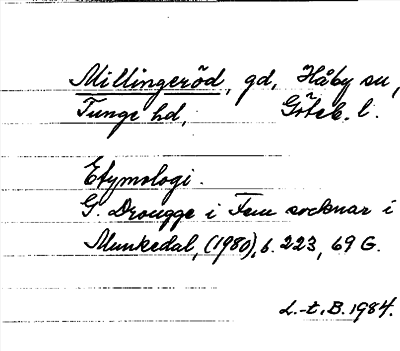 Millingeröd, gd, Håby sn,
Tunge hd, Göteb. l.
Etymologi.
G. Drougge i Fem socknar i
Munkedal, (1980), s. 223, 69 G.
L.-t. B. 1984.